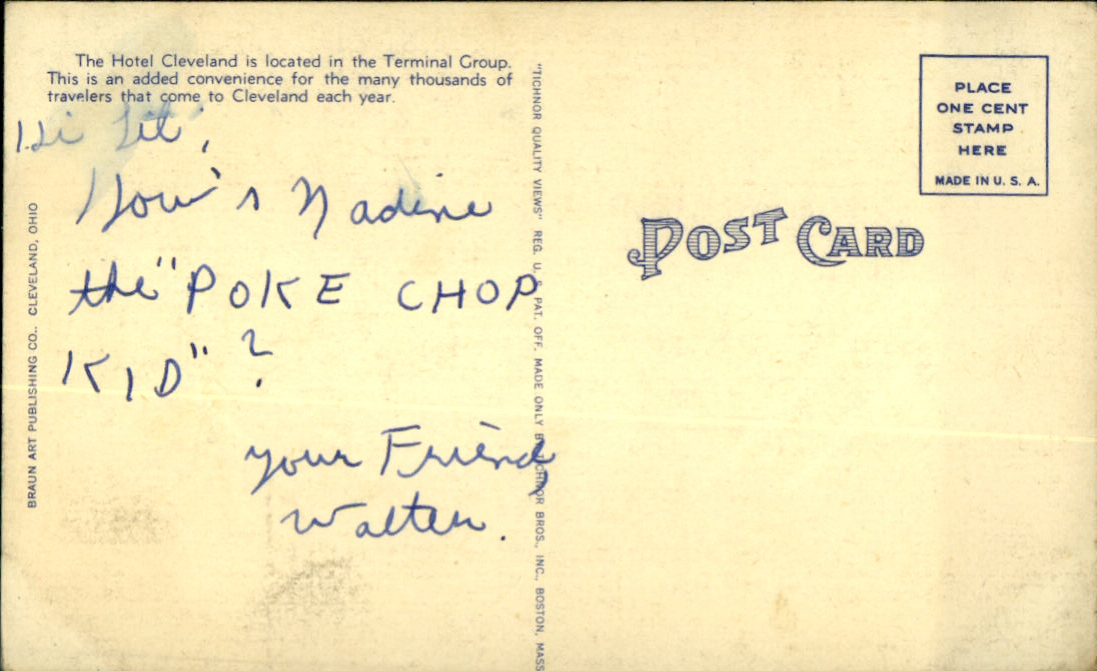 The Hotel Cleveland is located in the Terminal Group.
This is an added convenience for the many thousands of
travelers that come to Cleveland each year.
Hi
How's Nadine
the "POKE CHOP
KID" ?
your Friend,
Walter.
BRAUN ART PUBLISHING CO., CLEVELAND, OHIO
"TICHNOR QUALITY VIEWS" REG. U. S. PAT. OFF. MADE ONLY BY TICHNOR BROS., INC., BOSTON, MASS
PLACE
ONE CENT
STAMP
HERE
MADE IN U. S. A.
POST CARD